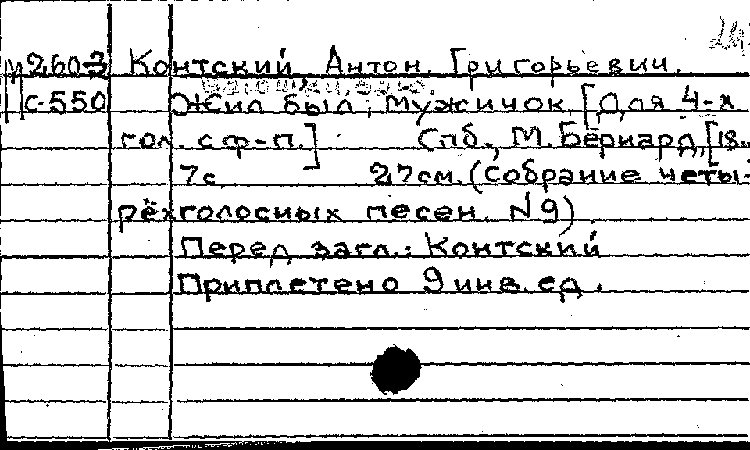 М260-3 Контский, Антон Григорьевич.
С-550 Жил был мужичок [Для 4-х
гол. с ф-п.] Спб., М. Бернард, [18..
7с. 27см. (Собрание четы-
рёхголосных песен. №9).
Перед загл.: Контский
Приплетено 9 инв. ед.